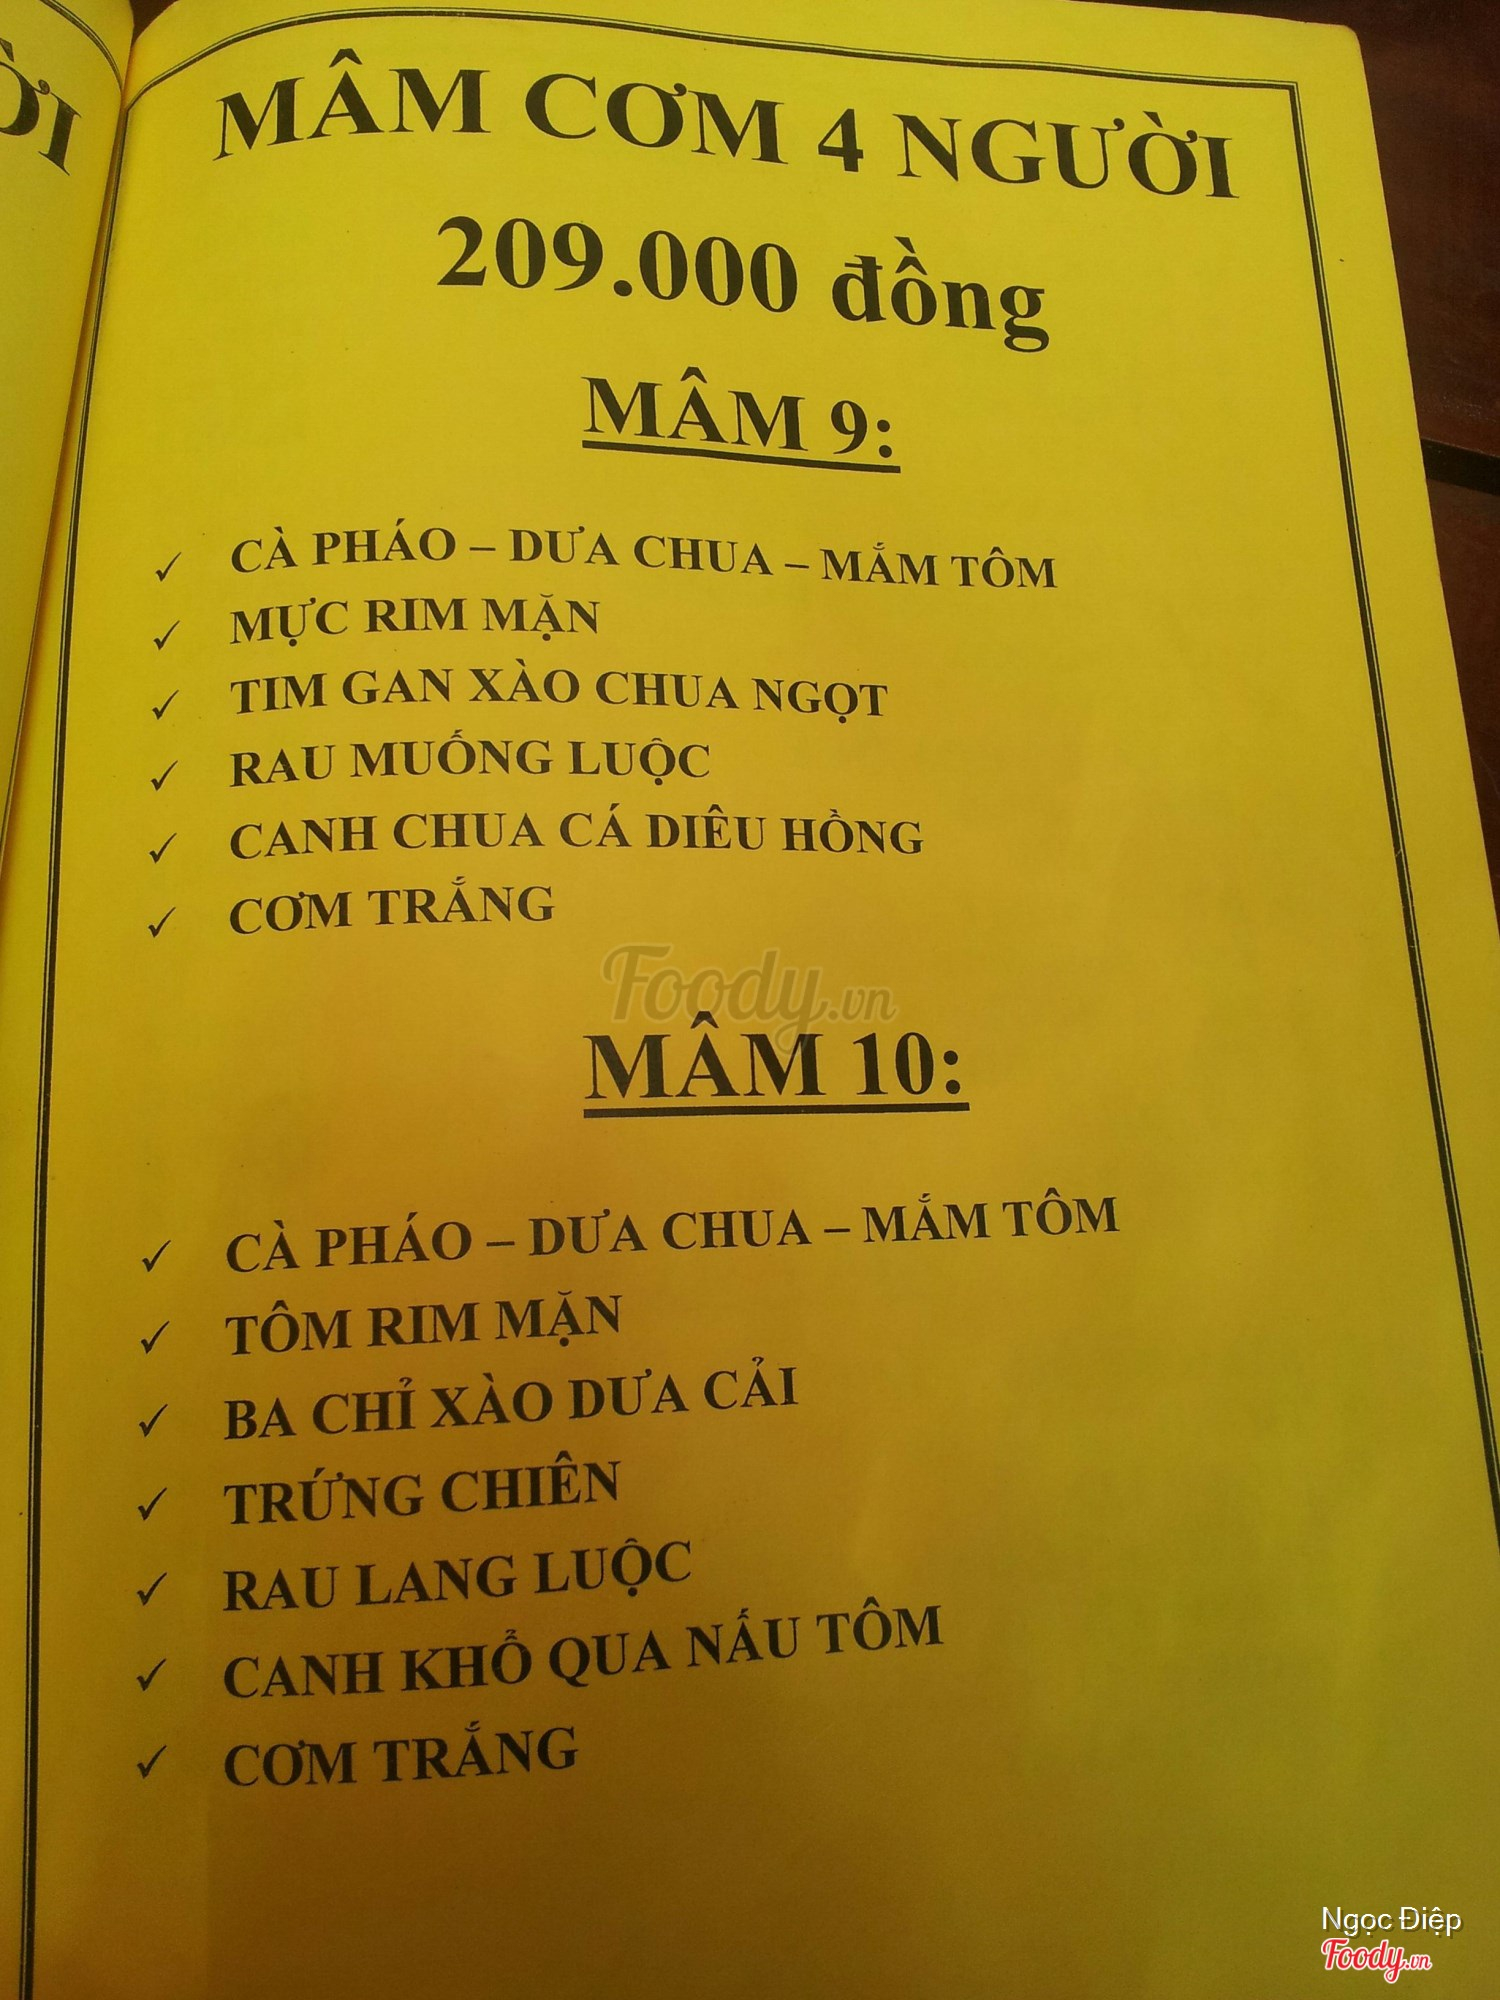 ỜI
MÂM CƠM 4 NGƯỜI
209.000 đồng
MÂM 9:
✓ CÀ PHÁO – DƯA CHUA – MẮM TÔM
✓ MỰC RIM MẶN
✓ TIM GAN XÀO CHUA NGỌT
✓ RAU MUỐNG LUỘC
✓ CANH CHUA CÁ DIÊU HỒNG
✓ CƠM TRẮNG
Foody.vn
MÂM 10:
✓ CÀ PHÁO – DƯA CHUA – MẮM TÔM
✓ TÔM RIM MẶN
✓ BA CHỈ XÀO DƯA CẢI
✓ TRỨNG CHIÊN
✓ RAU LANG LUỘC
✓ CANH KHỔ QUA NẤU TÔM
✓ CƠM TRẮNG
Ngọc Điệp
Foody.vn